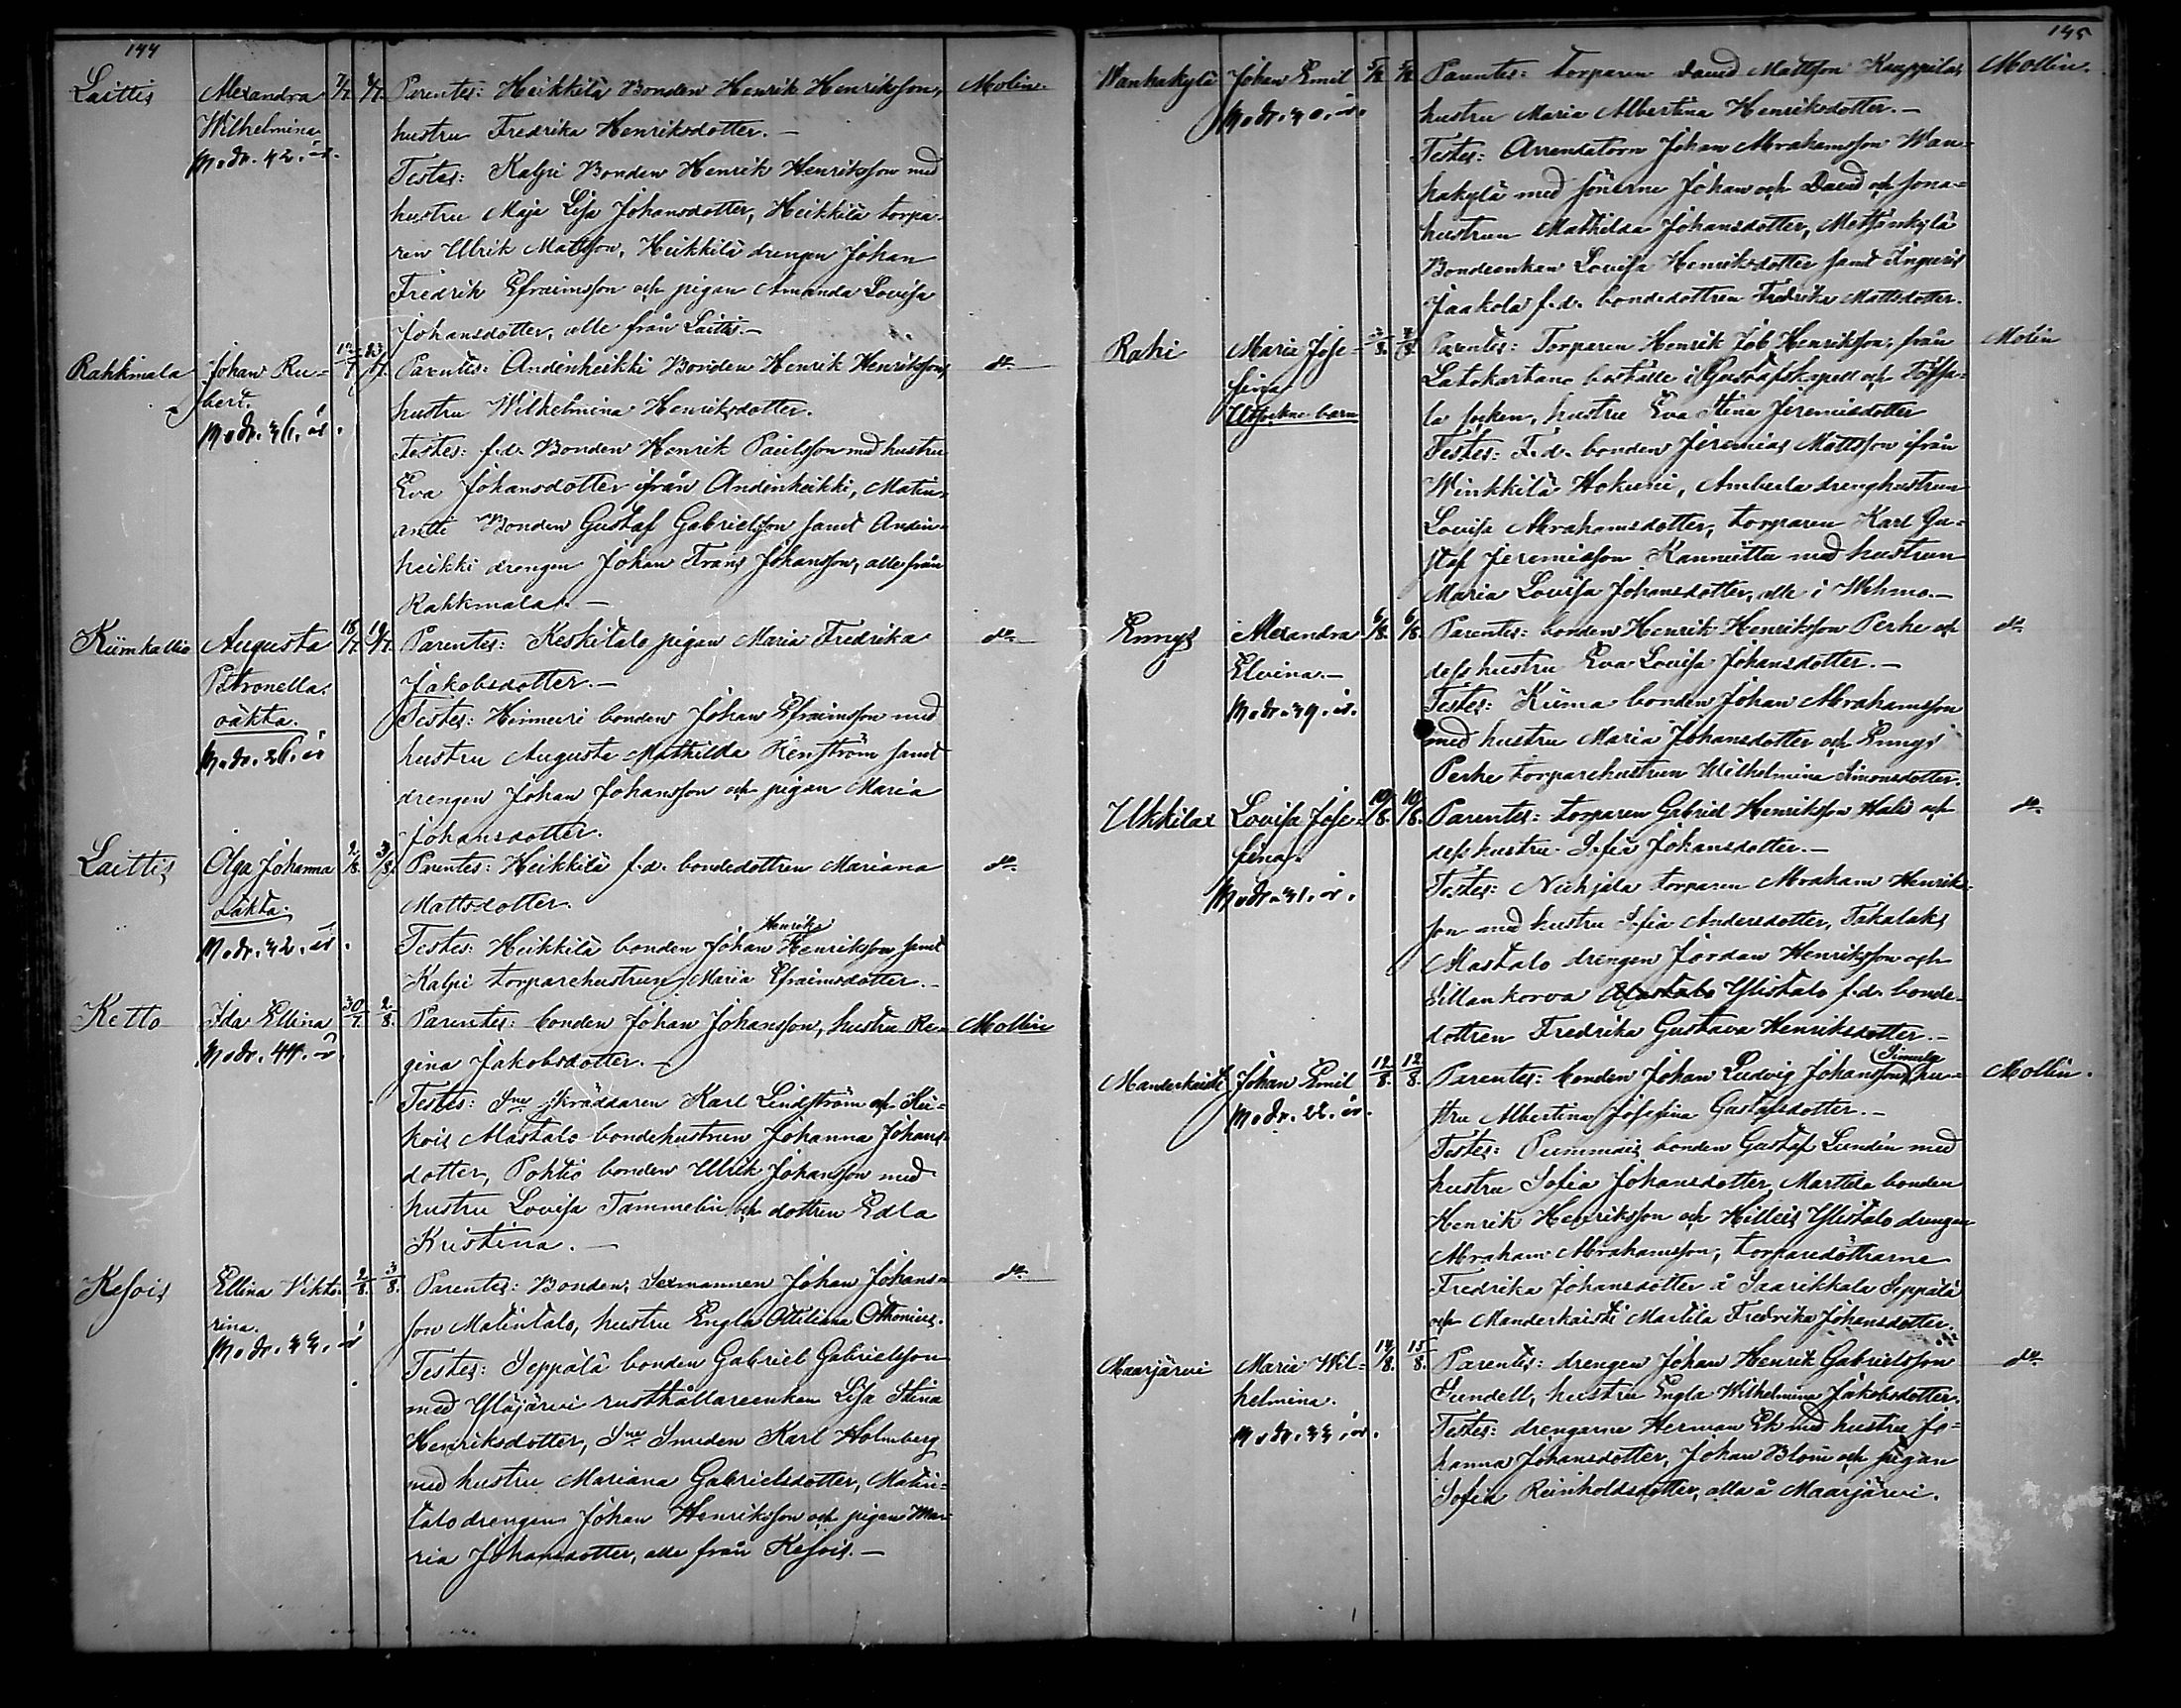 144
Laittis Alexandra 7/7. 8/7. Parentes: Heikkilä Bonden Henrik Henriksson, Molin.
Wilhelmina hustru Fredrika Henriksdotter. —
Modr. 42. år. Testes: Kalpi Bonden Henrik Henriksson med
hustru Maja Lisa Johansdotter, Heikkilä torpa-
ren Ulrik Mattsson, Heikkilä drengen Johan
Fredrik Efraimsson och pigan Amanda Lovisa
Johansdotter, alle från Laittis. —
Rahkmala Johan Ru- Parentes: Andinheikki Bonden Henrik Henriksson, do
bert. hustru Wilhelmina Henriksdotter.
Modr. 36. år. Testes: f.d. Bonden Henrik Påulsson med hustru
Eva Johansdotter ifrån Andinheikki, Matin-
antti Bonden Gustaf Gabrielsson samt Andin-
heikki drengen Johan Frans Johansson, alle från
Rahkmala. —
Kiimkallio Augusta 18/7. 19/7. Parentes: Keskitalo pigan Maria Fredrika do
Petronella. Jakobsdotter. —
oäkta. Testes: Heimuri bonden Johan Efraimsson med
Modr. 26. år hustru Augusta Mathilda Renström samt
drengen Johan Johansson och pigan Maria
Johansdotter.
Laittis Olga Johanna 2/8. 3/8. Parentes: Heikkilä f.d. bondedottren Mariana do
oäkta. Mattsdotter.
Henriks
Modr. 32. år. Testes: Heikkilä bonden Johan Henriksson samt
Kalpi torparehustrun Maria Efraimsdotter. —
Ketto Ida Ellina 30/7. 2/8. Parentes: bonden Johan Johansson, hustru Re- Mollin
Modr. 44. år. gina Jakobsdotter. —
Testes: Sne Skräddaren Karl Lindström och
Alastalo bondehustrun Johanna Johans-
dotter, Pohtio bonden Ulrik Johansson med
hustru Lovisa Tammelin och dottren Edla
Kristina. —
Kesois Ellina Vikto- 2/8. 3/8. Parentes: Bonden, Sexmannen Johan Johans- do
rina. son Matintalo, hustru Engla Ottiliana Othonius.
Modr. 33. år Testes: Seppälä bonden Gabriel Gabrielsson
med Yläjärvi rusthållareenkan Lisa Stina
Henriksdotter, Sne Smeden Karl Holmberg
med hustru Mariana Gabrielsdotter, Matin-
talo drengen Johan Henriksson och pigan Ma-
ria Johansdotter, alle från Kesois. —
145
Wanhakylä Johan Emil Parentes: torparen David Mattsson Kauppila, Mollin.
Modr. 40. år. hustru Maria Albertina Henriksdotter. —
Testes: Arrendatorn Johan Abrahamsson Wan-
hakylä med sönerne Johan och David och sona-
hustrun Mathilda Johansdotter, Metsänkylä
Bondeenkan Lovisa Henriksdotter samt Ingeris
Jaakola f.d. bondedottren Fredrika Mattsdotter.
Rahi Maria Jose- Parentes: Torparen Henrik Job Henriksson, från Molin
fina Latokartano boställe i Gustafs kapell och Töfsa-
Utsockne barn la socken, hustru Eva Stina Jeremiedotter
Testes: F.d. bonden Jeremias Mattsson ifrån
Winkkilä Hokuni, Amburla drenghustrun
Lovisa Abrahamsdotter, torparen Karl Gu-
staf Jeremiasson Kannuttu med hustrun
Maria Lovisa Johansdotter, alle i Wehmo. —
Ennys Alexandra 6/8. 6/8. Parentes: bonden Henrik Henriksson Perhe och do
Elvina. — dess hustru Eva Lovisa Johansdotter. —
Modr. 39. år. Testes: Kiima bonden Johan Abrahamsson
med hustru Maria Johansdotter och Ennys
Perhe torparehustrun Wilhelmina Simonsdotter.
Ukkila Lovisa Jose- 10/8. 10/8. Parentes: torparen Gabriel Henriksson Halis och do
fina. dess hustru Sofia Johansdotter. —
Modr. 31. år. Testes: Nichjala torparen Abraham Henriks-
son med hustru Sofia Andersdotter, Takalaks
Alastalo drengen Jordan Henriksson och
Sillankorva Alastalo Ylistalo f.d. bonde-
dottren Fredrika Gustava Henriksdotter. —
Simula
Manderkaisti Johan Emil 12/8. 12/8. Parentes: bonden Johan Ludvig Johansson, hu- Mollin.
Modr. 22. år. stru Albertina Josefina Gustafsdotter. —
Testes: Pummais bonden Gustaf Lundén med
hustru Sofia Johansdotter, Marttila bonden
Henrik Henriksson och Hilleis Ylistalo drengen
Abraham Abrahamsson, torparedöttrarne
Fredrika Johansdotter å Saarikkala Seppälä
och Manderkaisti Martila Fredrika Johansdotter.
Maarjärvi Maria Wil- 14/8. 15/8. Parentes: drengen Johan Henrik Gabrielsson do
helmina. Sundell, hustru Engla Wilhelmina Jakobsdotter.
Modr. 33. år. Testes: drengarne Herman Ek med hustru Jo-
hanna Johansdotter, Johan Blom och pigan
Sofia Reinholdsdotter, alla å Maarjärvi.